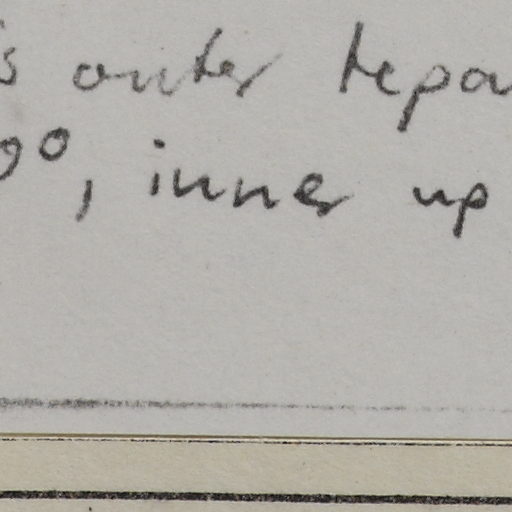 s outer tepa
90°, inner up